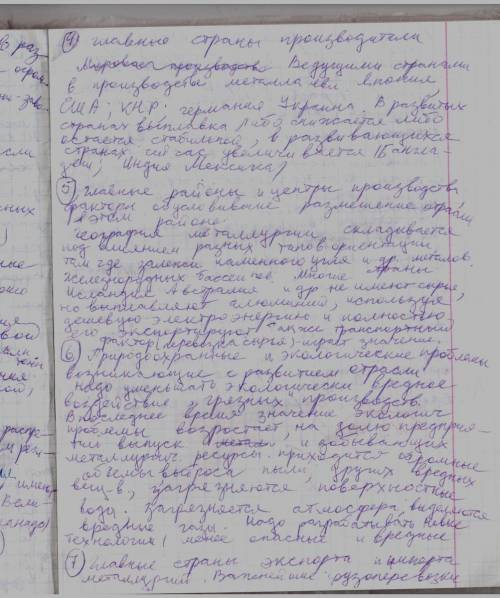 4) главные страны производители
Мировое производство Ведущими странами
в производстве металла явл япония
США; КНР; германия Украина. В развитых
странах выплавка либо снижается либо
остается стабильной, в развивающихся
странах сейчас увеличивается (
Индия Мексика)
5) главные районы и центры производства
факторы обусловившие размещение отрасли
в этом районе.
География металлургии складывается
под влиянием разных типов ориентации
там где залежи каменного угля и др. металов.
железнорудных бассейнов. Многие страны
Исландия Австралия и др не имеют сырья,
но выплавляют алюминий, используя
дешевую электроэнергию и полностью
его экспортируют также транспортный
фактор (перевозка сырья) играет значение.
6) Природоохранные и экологические проблемы
возникающие с развитием отрасли
Надо уменьшать экологически вредное
воздействие "грязных" производств.
В последнее время значение экологич
проблемы возрастает, на долю предприя-
тий выпуск и добывающих
металлургич ресурсы приходится огромные
объемы выброса пыли, других вредных
вещ-в, загрязняются поверхностные
воды. Загрязняется атмосфера, выделяются
вредные газы. Надо разрабатывать новые
технологии, менее опасные и вредные
7) главные страны экспорта и импорта
металлургии. Важнейшие грузоперевозки